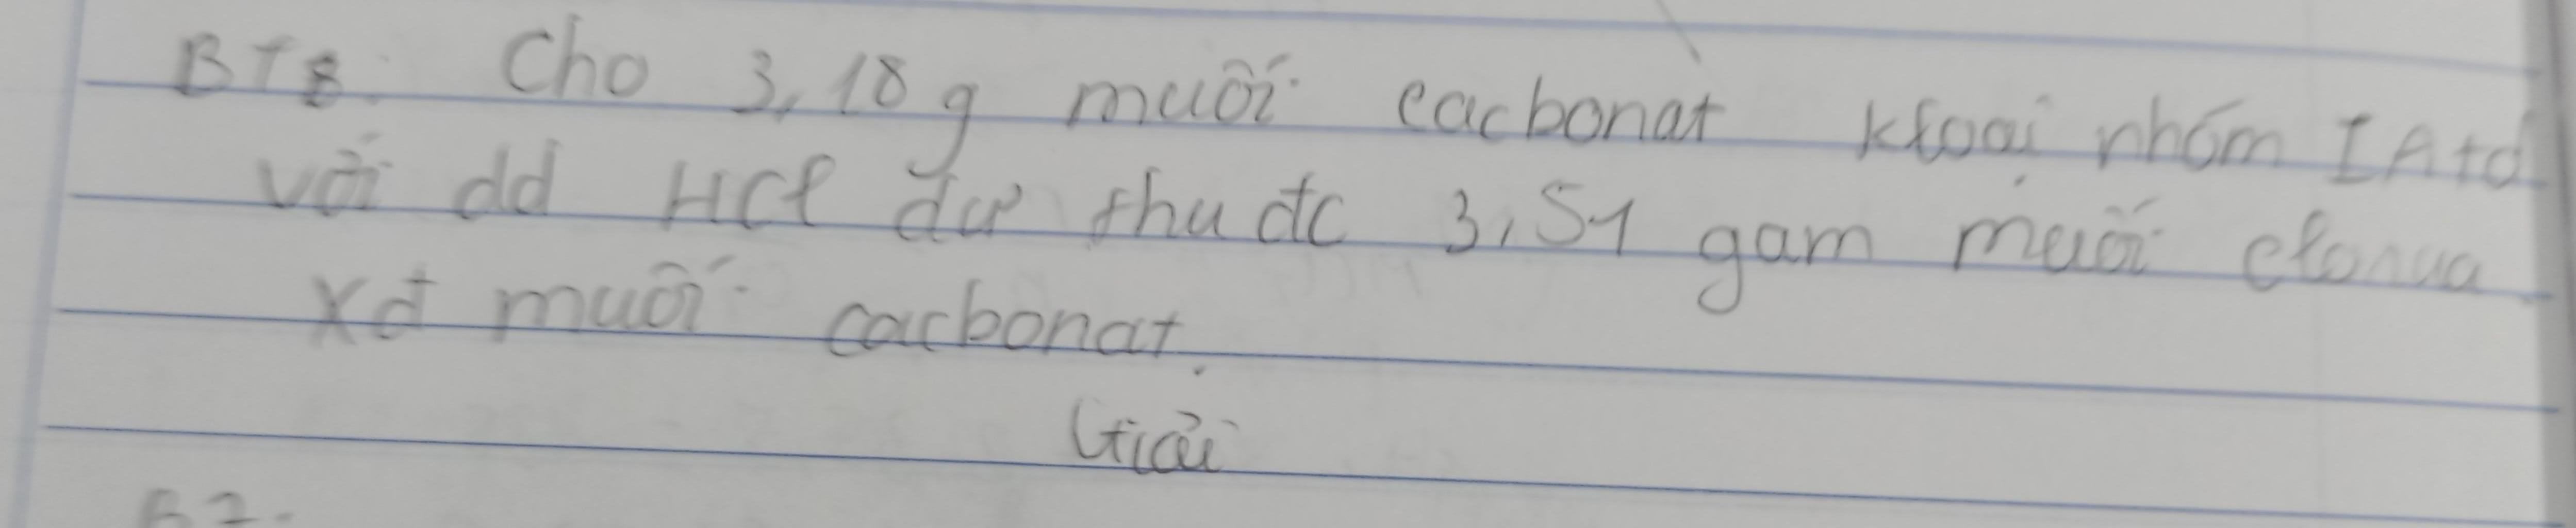 BT8: Cho 3,18 g muối cacbonat kloại nhóm IA td
với dd HCl dư thu đc 3,51 gam muối clorua
xđ muối cacbonat.
Giải